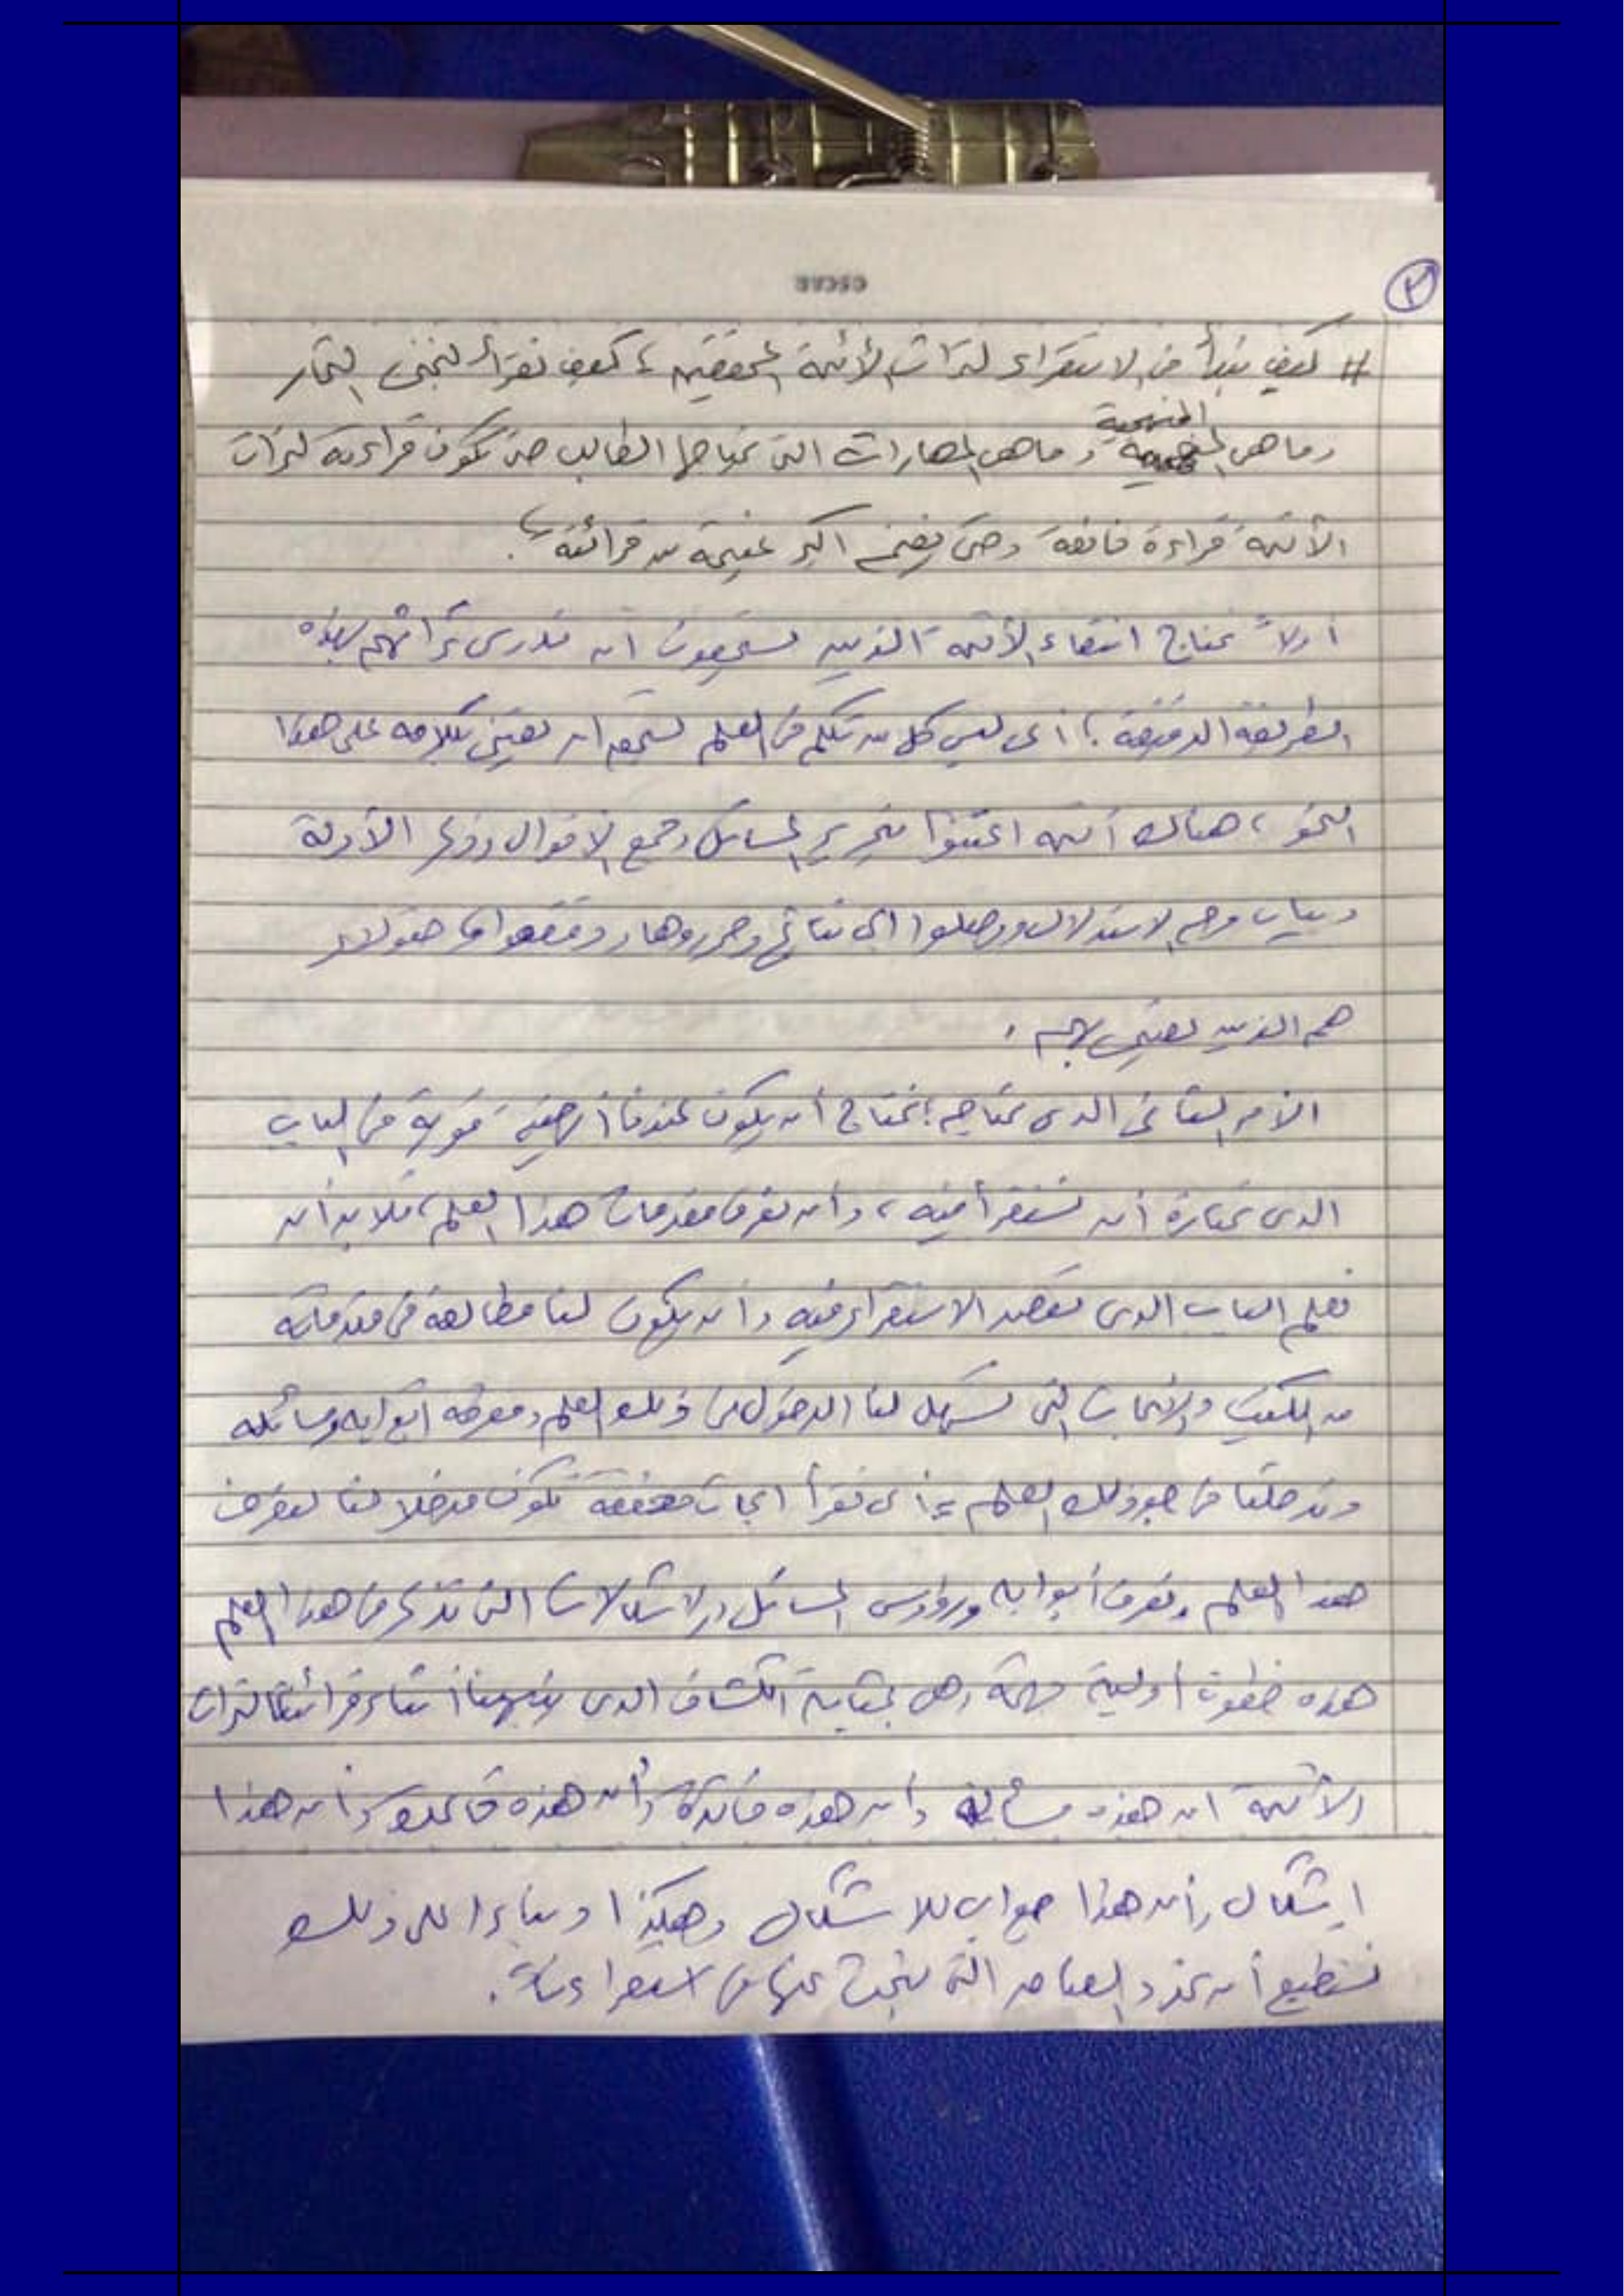 ٢
# كيف نبدأ في الاستقراء لتراث الأئمة المحققين ، كيف نقرأ لنجني الثمار
المنهجية
وما هي وما هي المهارات التي يحتاجها الطالب حتى تكون قراءته لتراث
الأئمة قراءة نافعة وحتى يغنم اكبر غنيمة من قرائته ؟.
أولاً نحتاج انتقاء الأئمة الذين يستحقون ان ندرس تراثهم بهذه
الطريقة الدقيقة ؛ أي ليس كل من تكلم في العلم يستحق ان يعتنى بكلامه على هذا
النحو ، هناك أئمه اعتنوا بتحرير المسائل وجمع الأقوال وذكر الأدلة
وبيان وجه الاستدلال ووصلوا الى نتائج وحرروها ودققوا فهؤلاء
هم الذين يعتنى بهم .
الأمر الثاني الذي نحتاجه ؛ نحتاج أن يكون عندنا أرضية قوية في الباب
الذي نختاره أن نستقرأ فيه ، وأن نعرف مقدمات هذا العلم ، فلا بد أن
نعلم الباب الذي نقصد الاستقراء فيه وأن يكون لنا مطالعة في مقدماته
من الكتب والأبحاث التي تسهل لنا الدخول في ذلك العلم ومعرفة ابوابه ومسائله
وتدخلنا في جو ذلك العلم ؛ أي نقرأ ابحاث محققة تكون مدخلا لنا لنعرف
هذا العلم ونعرف أبوابه ورؤوس المسائل والاشكالات التي تذكر في هذا العلم
هذه خطوة أولية مهمة وهي بمثابة الكشاف الذي ينبهنا أثناء قرائتنا لتراث
الأئمة ان هذه مسألة وأن هذه فائدة وأن هذه قاعدة وأن هذا
إشكال وأن هذا جواب للاشكال وهكذا وبناءا على ذلك
نستطيع أن نحدد العناصر التي نبحث عنها في استقراءنا .